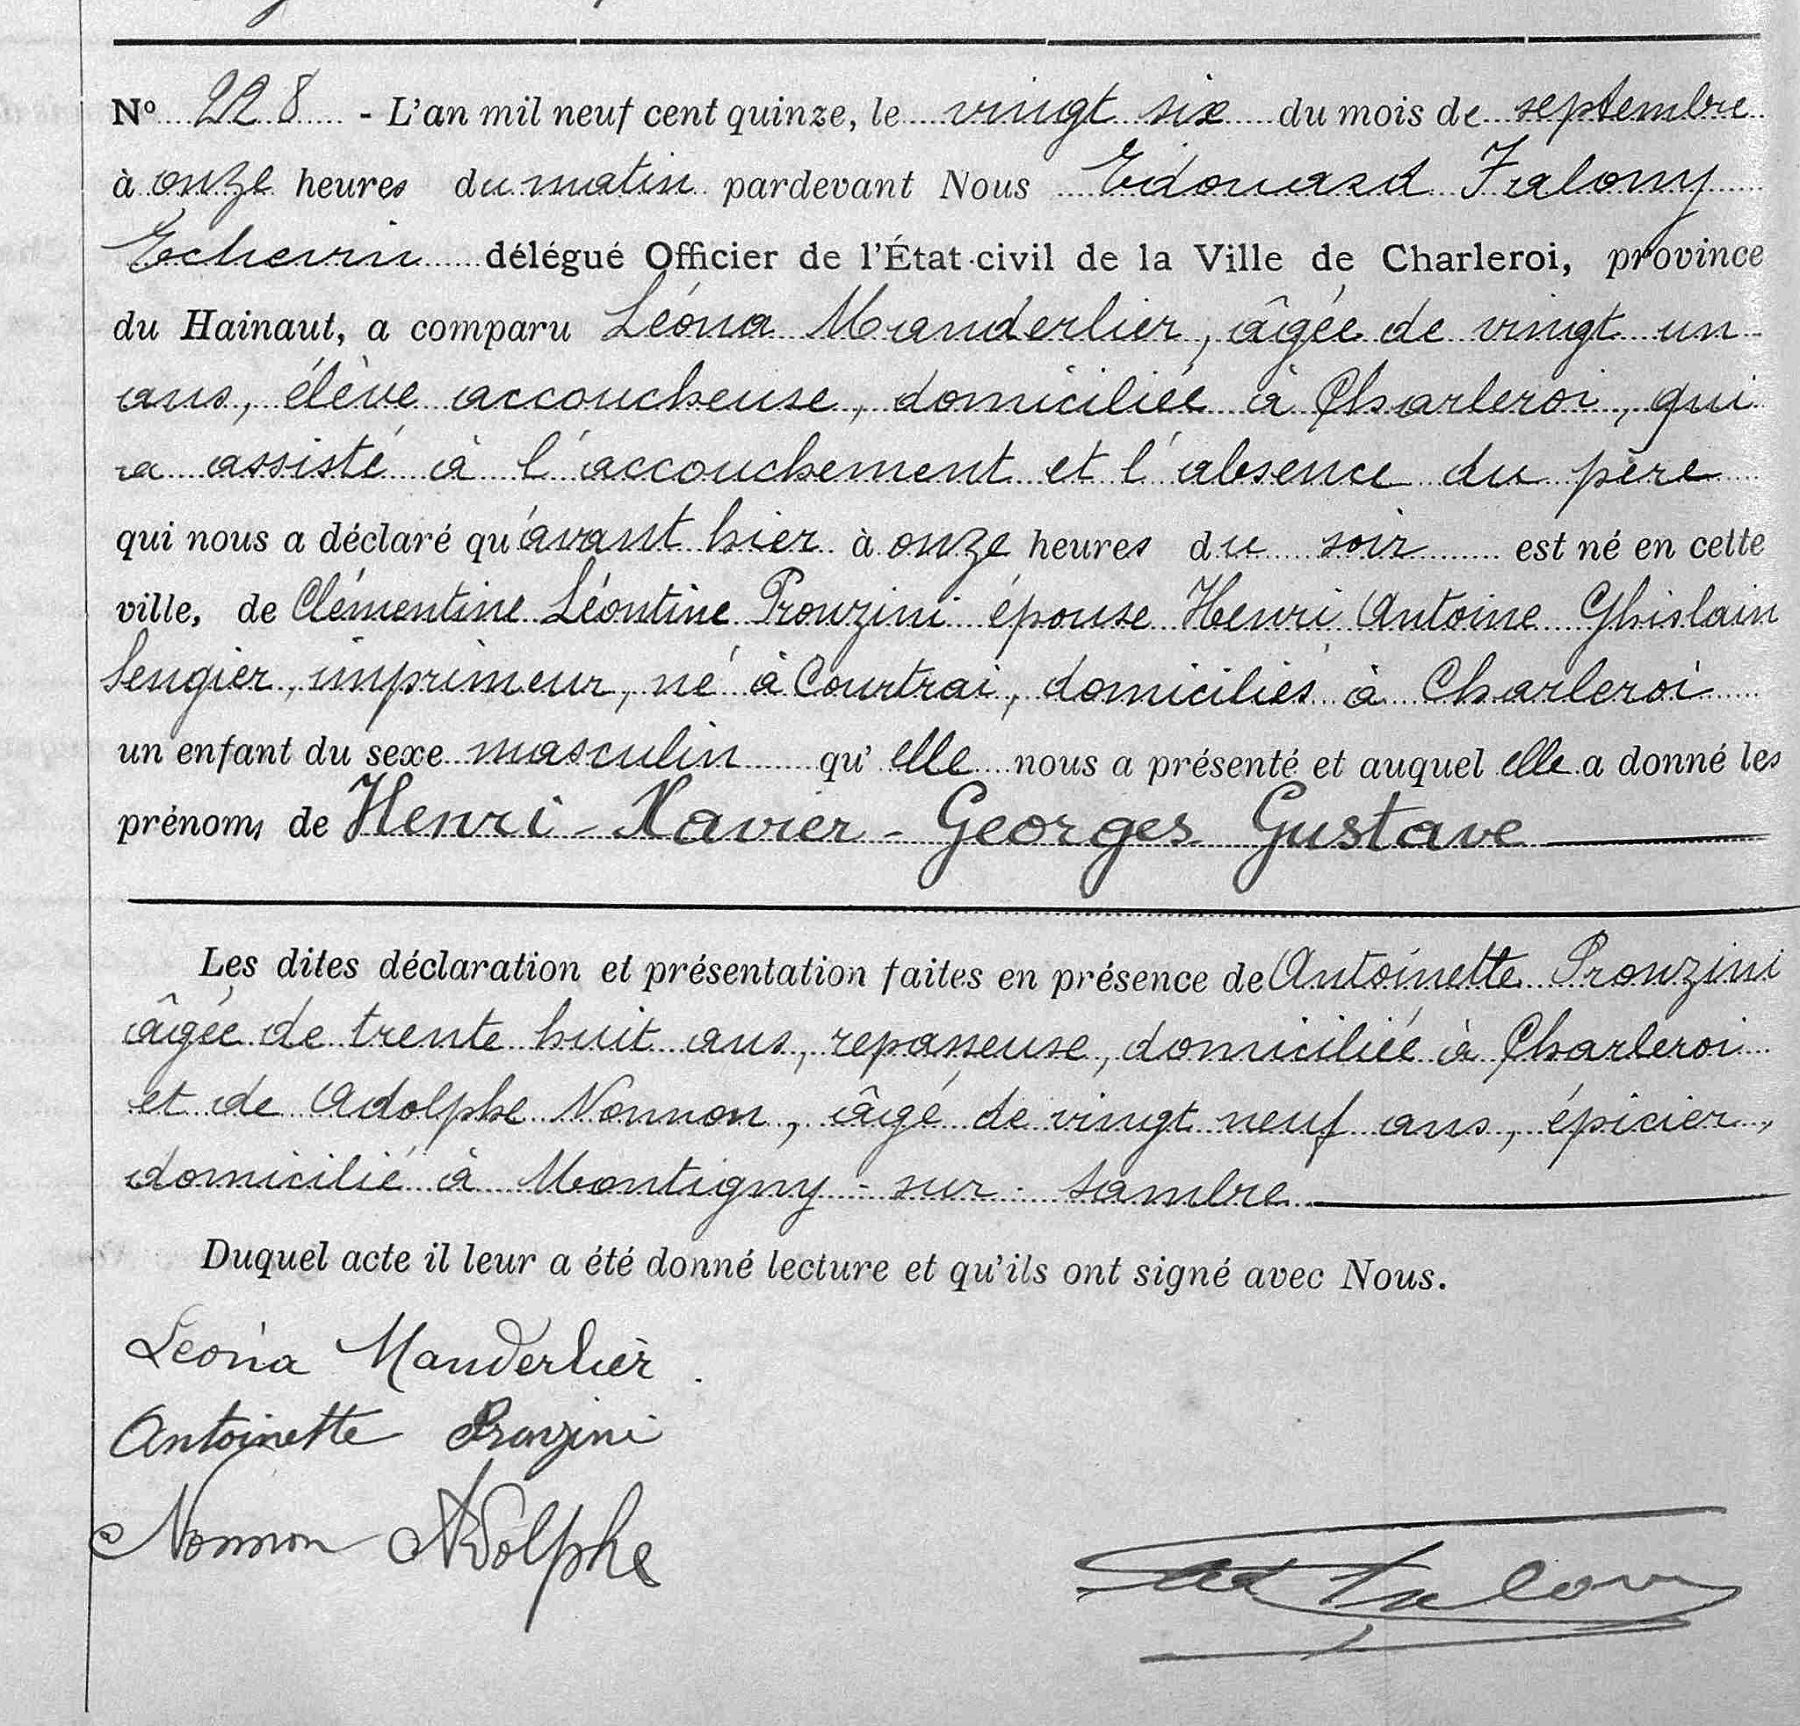 N° 228 - L'an mil neuf cent quinze, le vingt six du mois de septembre
à onze heures du matin pardevant Nous Edouard Falony
Echevin délégué Officier de l'État-civil de la Ville de Charleroi, province
du Hainaut, a comparu Léona Manderlier, âgée de vingt un
ans, élève accoucheuse, domiciliée à Charleroi, qui
a assisté à l'accouchement et l'absence du père
qui nous a déclaré qu'avant hier à onze heures du soir est né en cette
ville, de Clémentine Léontine Pronzini épouse Henri Antoine Ghislain
Sengier, imprimeur, né à Courtrai, domiciliés à Charleroi
un enfant du sexe masculin qu'elle nous a présenté et auquel elle a donné les
prénoms de Henri - Xavier - Georges Gustave
Les dites déclaration et présentation faites en présence de Antoinette Pronzini
âgée de trente huit ans, repasseuse, domiciliée à Charleroi
et de Adolphe Nonnon, âgé de vingt neuf ans, épicier,
domicilié à Montigny - sur - Sambre
Duquel acte il leur a été donné lecture et qu'ils ont signé avec Nous.
Léona Manderlier.
Antoinette Pronzini
Nonnon Adolphe